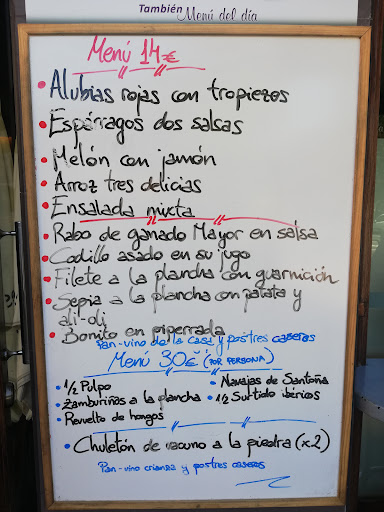 También
Menú del día
Menú 14€
• Alubias rojas con tropiezos
• Espárragos dos salsas
• Melón con jamón
• Arroz tres delicias
• Ensalada mixta
• Rabo de ganado Mayor en salsa
• Codillo asado en su jugo
• Filete a la plancha con guarnición
• Sepia a la plancha con patata y
ali-oli
• Bonito en piperrada
Pan-vino de la casa y postres caseros
Menú 30€ (POR PERSONA)
• 1/2 Pulpo
• Zamburiñas a la plancha
• Revuelto de hongos
• Navajas de Santoña
• 1/2 Surtido ibérios
• Chuletón de vacuno a la piedra (x2)
Pan-vino crianza y postres caseros